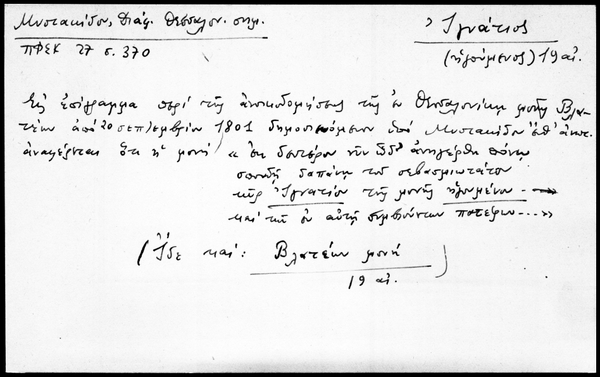 Μυστακίδου, Διάφ. Θεσσαλον. σημ.
ΠΦΣΚ 27 σ. 370
Ἰγνάτιος
(ἡγούμενος) 19 αἰ.
Εἰς ἐπίγραμμα περὶ τῆς ἀνοικοδομήσεως τῆς ἐν Θεσσαλονίκῃ μονῆς Βλα-
τέων ἀπὸ 20 σεπ/εμβρίου 1801 δημοσιευόμενον ὑπὸ Μυστακίδου
ἀναφέρεται ὅτι ἡ μονὴ « ἐκ δευτέρου νῦν ὧδ' ἀνηγέρθη πόνῳ
σπουδῇ δαπάνῃ τοῦ σεβασμιωτάτου
κὺρ Ἰγνατίου τῆς μονῆς ἡγουμένου ...
καὶ τῶν ἐν αὐτῇ συμβιούντων πατέρων ... »
(Ἴδε καὶ: Βλατέων μονή)
19 αἰ.